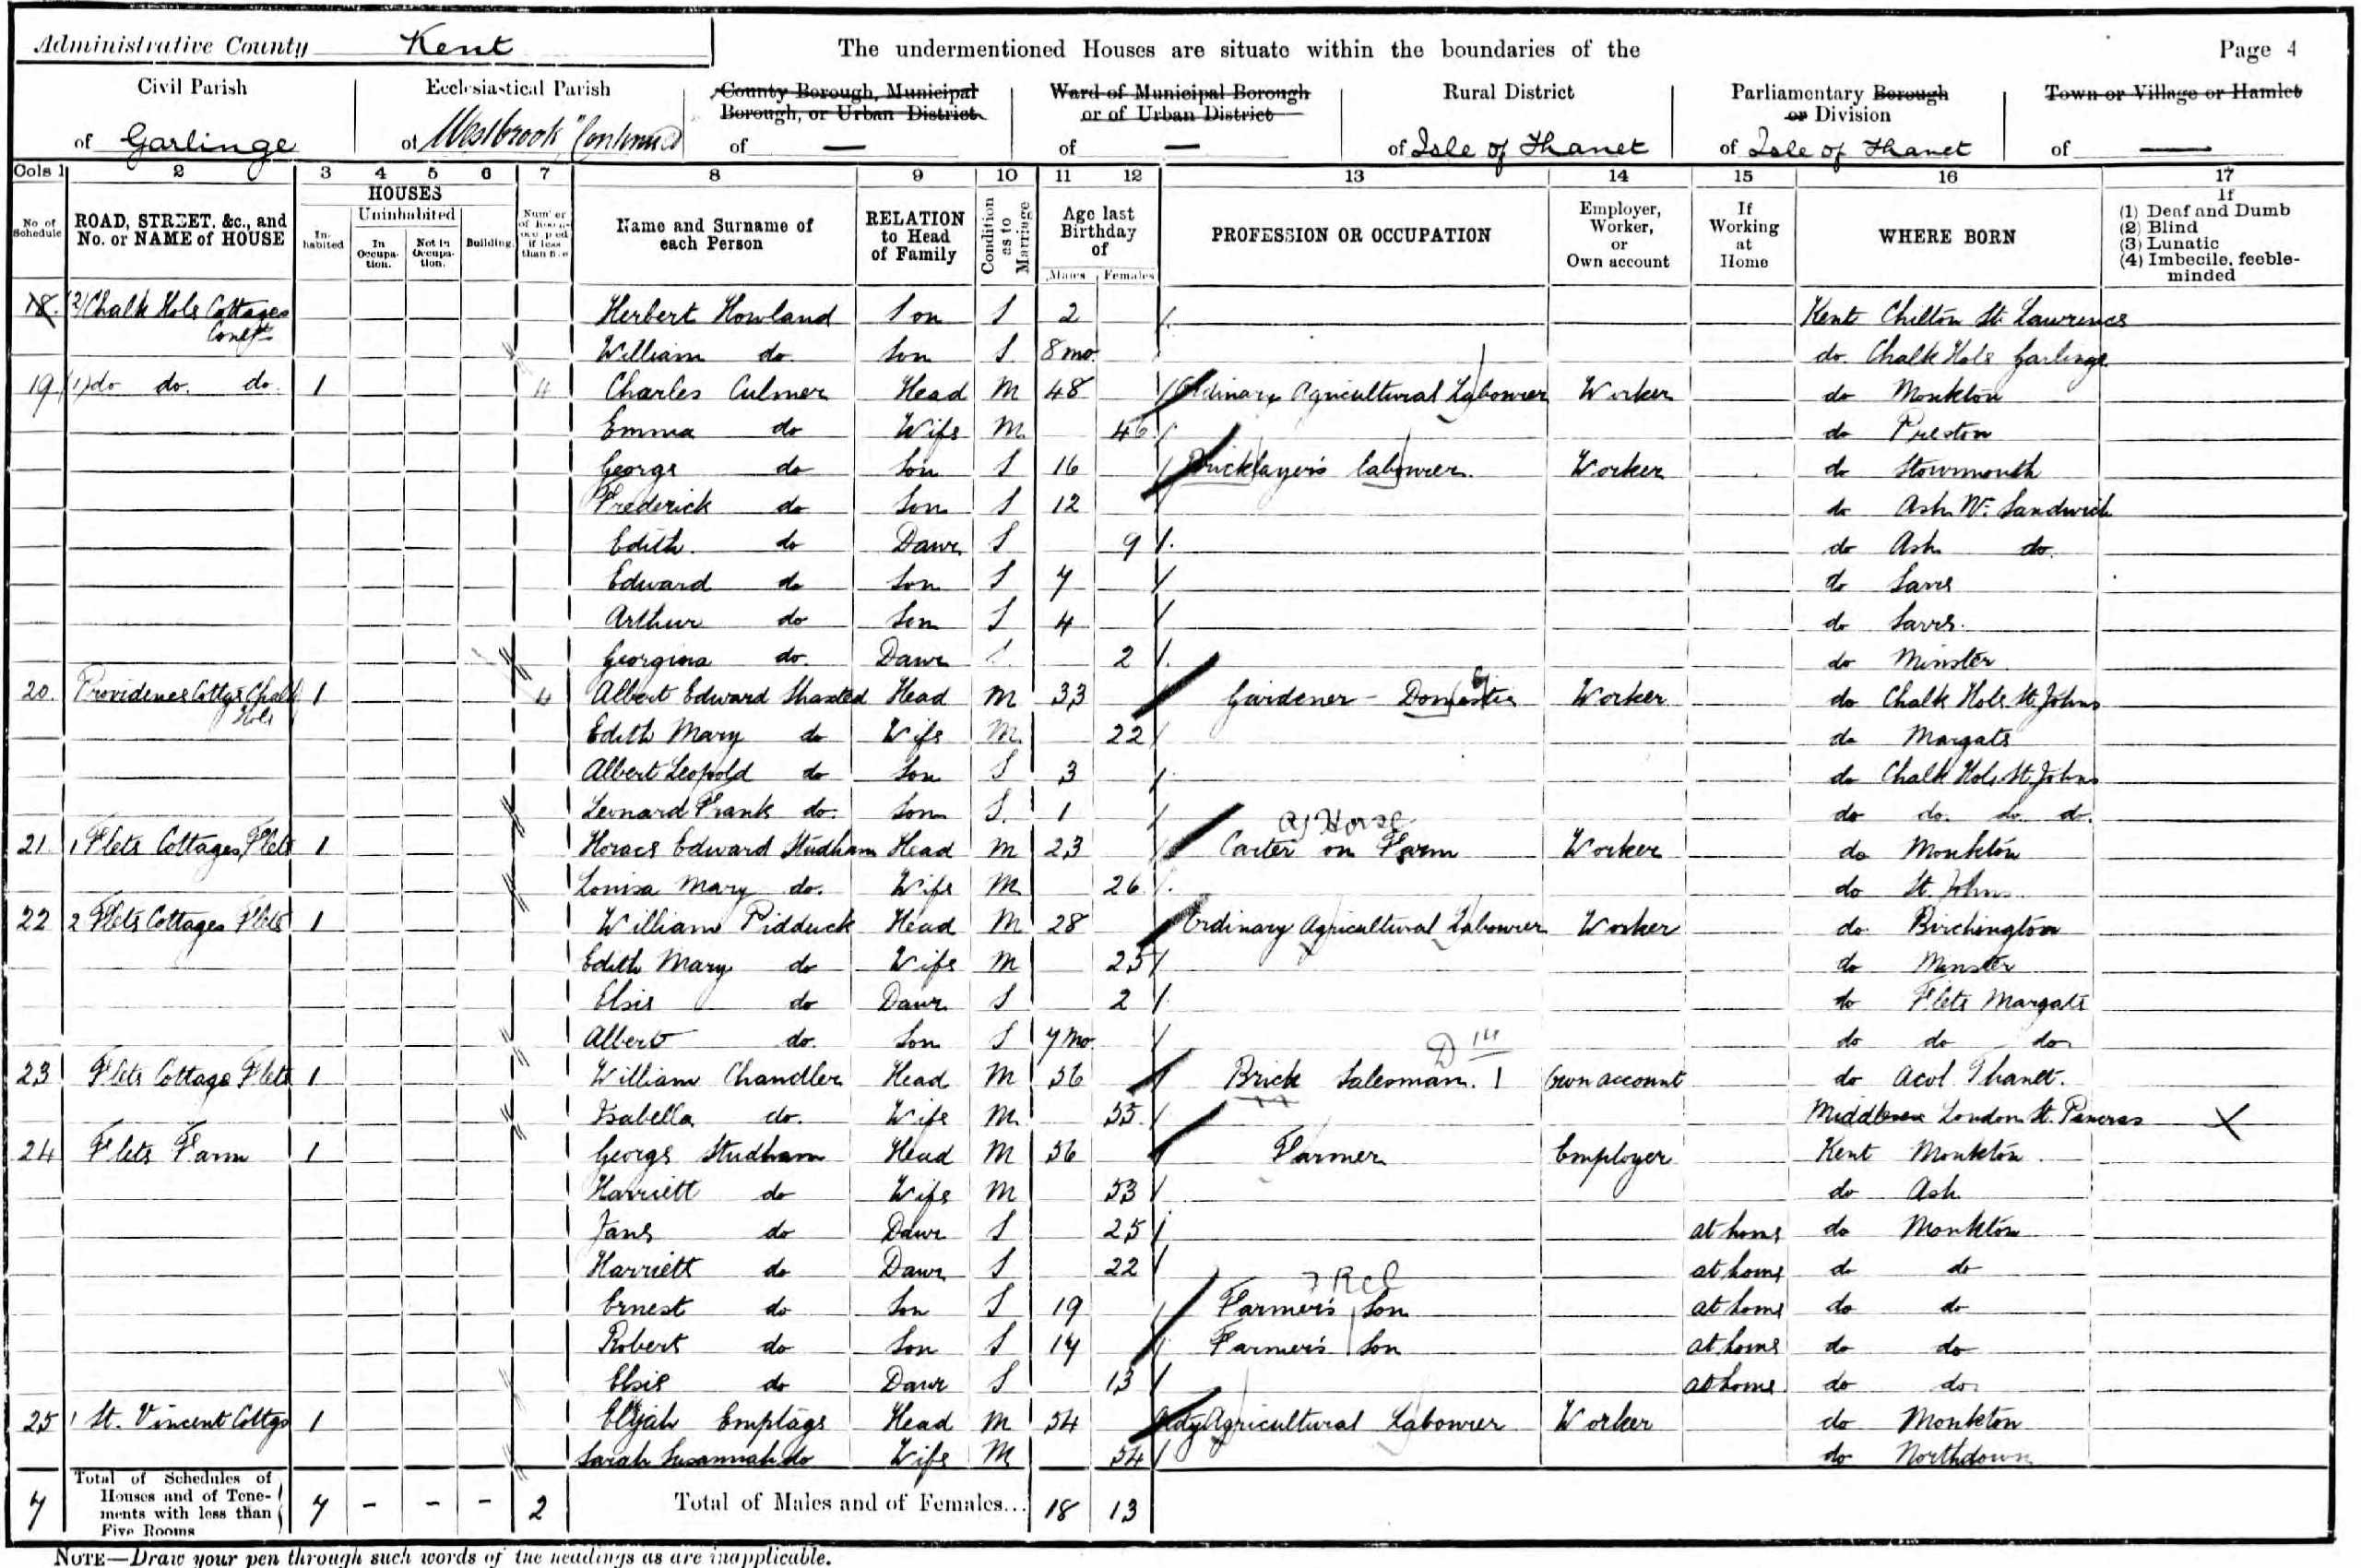 Administrative County Kent The undermentioned Houses are situate within the boundaries of the Page 4
Civil Parish Ecclesiastical Parish County Borough, Municipal Borough, or Urban District Ward of Municipal Borough or of Urban District Rural District Parliamentary Borough or Division Town or Village or Hamlet
of Garlinge of Westbrook "Continued of — of — of Isle of Thanet of Isle of Thanet of —
Cols 1 2 3 4 5 6 7 8 9 10 11 12 13 14 15 16 17
No of Schedule ROAD, STREET, &c., and No. or NAME of HOUSE HOUSES Inhabited Uninhabited In Occupation. Not in Occupation. Building. Number of Rooms occupied if less than five Name and Surname of each Person RELATION to Head of Family Condition as to Marriage Age last Birthday of Males Females PROFESSION OR OCCUPATION Employer, Worker, or Own account If Working at Home WHERE BORN If (1) Deaf and Dumb (2) Blind (3) Lunatic (4) Imbecile, feeble-minded
18. (2) Chalk Hole Cottages Herbert Howland Son S 2 Kent Chilton St. Lawrence
William do. Son S 8 mo. do. Chalk Hole Garlinge
19 (1) do do. do. 1 4 Charles Culmer Head M 48 Ordinary Agricultural Labourer Worker do Monkton
Emma do Wife M 46 do Preston
George do Son S 16 Bricklayer's labourer. Worker do Stourmouth
Frederick do Son S 12 do Ash Nr. Sandwich
Edith. do Dawr S 9 do Ash do.
Edward do Son S 7 do Sarre
Arthur do Son S 4 do Sarre.
Georgina do. Dawr S 2 do Minster
20. Providence Cottgs Chalk Hole 1 4 Albert Edward Shaxted Head M 33 Gardener - Domestic Worker do Chalk Hole St. Johns
Edith Mary do Wife M 22 do Margate
Albert Leopold do Son S 3 do Chalk Hole St. Johns
Leonard Frank do. Son S. 1 do do. do. do.
21 1 Flete Cottages, Flete 1 Horace Edward Studham Head M 23 Carter on Farm Horse Worker do Monkton
Louisa Mary do. Wife M 26 do St. Johns
22 2 Flete Cottages Flete 1 William Pidduck Head M 28 Ordinary Agricultural Labourer Worker do. Birchington
Edith Mary do Wife M 25 do Minster
Elsie do Dawr S 2 do Flete Margate
Albert do. Son S 7 mo. do do do
23 Flete Cottage Flete 1 William Chandler Head M 56 Brick Salesman. Own account do Acol Thanet.
Isabella do. Wife M 55 Middlesex London St. Pancras X
24 Flete Farm 1 George Studham Head M 56 Farmer Employer Kent Monkton
Harriett do Wife M 53 do Ash
Jane do Dawr S 25 at home do Monkton
Harriett do Dawr S 22 at home do do
Ernest do Son S 19 Farmer's Son at home do do
Robert do Son S 14 Farmer's Son at home do do
Elsie do Dawr S 13 at home do do
25 1 St. Vincent Cottgs 1 Elijah Emptage Head M 54 Ordy Agricultural Labourer Worker do Monkton
Sarah Susannah do Wife M 54 do Northdown
7 Total of Schedules of Houses and of Tenements with less than Five Rooms 7 - - - 2 Total of Males and of Females... 18 13
NOTE—Draw your pen through such words of the headings as are inapplicable.